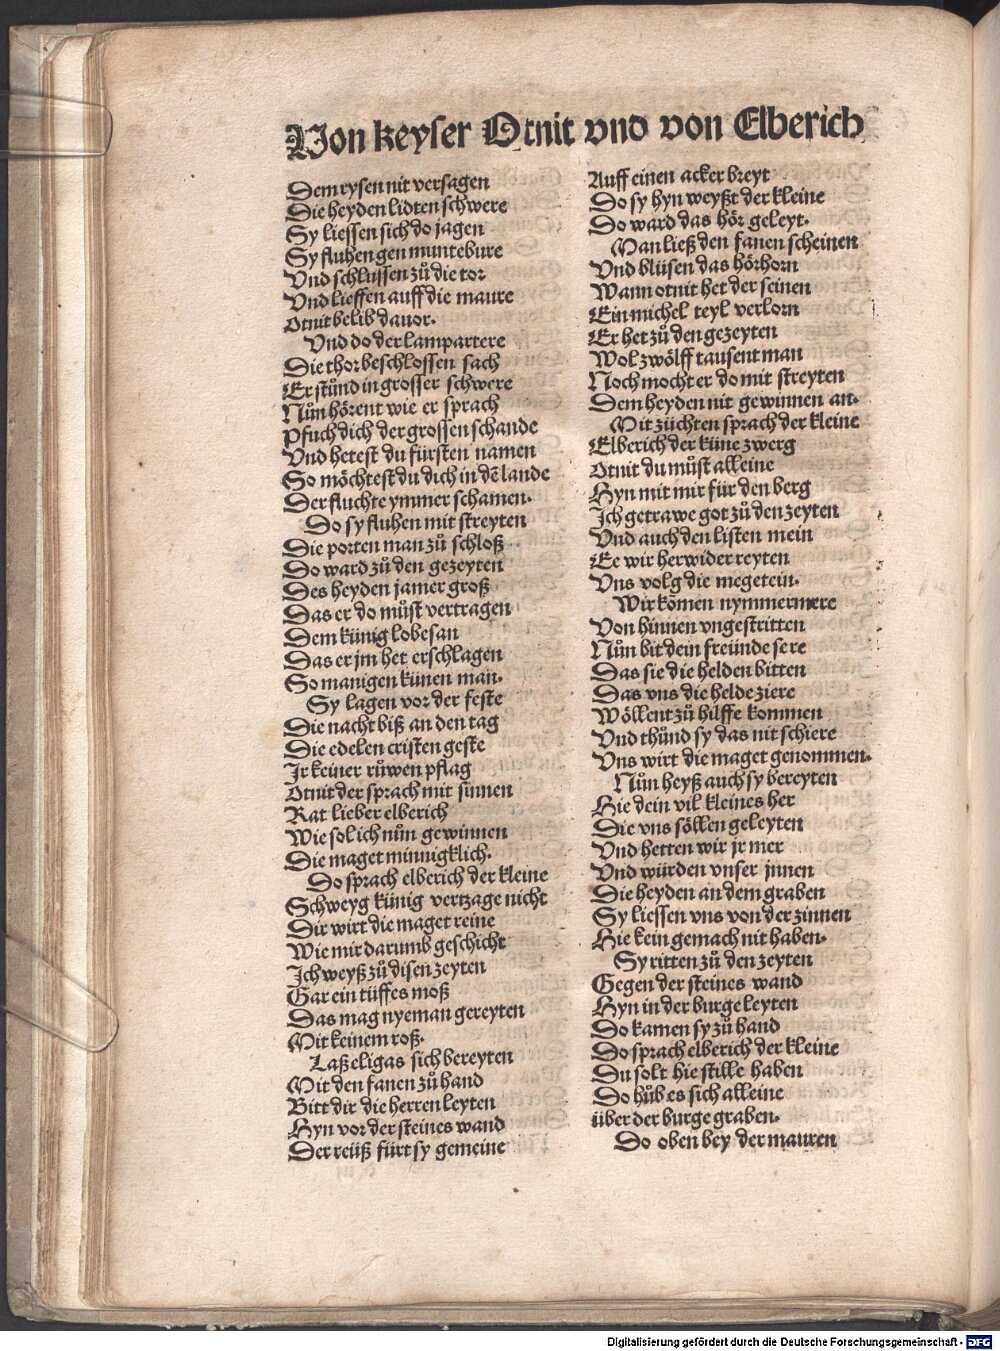 Von keyser Otnit vnd von Elberich
Dem rysen nit versagen
Die heyden lidten schwere
Sy liessen sich do jagen
Sy fluhen gen muntebure
Vnd schlussen zů die tor
Vnd lieffen auff die maure
Otnit belib dauor.
Vnd do der lampartere
Die thor beschlossen sach
Er stůnd in grosser schwere
Nůn hörent wie er sprach
Pfuch dich der grossen schande
Vnd hetest du fürsten namen
So möchtest du dich in dē lande
Der fluchte ymmer schamen.
Do sy fluhen mit streyten
Die porten man zů schloß
Do ward zů den gezeyten
Des heyden jamer groß
Das er do můst vertragen
Dem künig lobesan
Das er jm het erschlagen
So manigen künen man.
Sy lagen vor der feste
Die nacht biß an den tag
Die edelen cristen geste
Jr keiner růwen pflag
Otnit der sprach mit sinnen
Rat lieber elberich
Wie sol ich nůn gewinnen
Die maget minnigklich.
Do sprach elberich der kleine
Schweyg künig vertzage nicht
Dir wirt die maget reine
Wie mir darumb geschicht
Jch weyß zů disen zeyten
Gar ein tüffes moß
Das mag nyeman gereyten
Mit keinem roß.
Laß eligas sich bereyten
Mit den fanen zů hand
Bitt dir die herren leyten
Hyn vor der steines wand
Der reüß fürt sy gemeine
Auff einen acker breyt
Do sy hyn weyßt der kleine
Do ward das hör geleyt.
Man ließ den fanen scheinen
Vnd blüsen das hörhorn
Wann otnit het der seinen
Ein michel teyl verlorn
Er het zů den gezeyten
Wol zwölff tausent man
Noch mocht er do mit streyten
Dem heyden nit gewinnen an.
Mit züchten sprach der kleine
Elberich der küne zwerg
Otnit du můst alleine
Hyn mit mir für den berg
Jch getrawe got zů den zeyten
Vnd auch den listen mein
Ee wir herwider reyten
Vns volg die megetein.
Wir kōmen nymmermere
Von hinnen vngestritten
Nůn bit dein freünde sere
Das sie die helden bitten
Das vns die helde ziere
Wöllent zů hilffe kommen
Vnd thůnd sy das nit schiere
Vns wirt die maget genommen.
Nůn heyß auch sy bereyten
Hie dein vil kleines her
Die vns söllen geleyten
Vnd hetten wir jr mer
Vnd würden vnser jnnen
Die heyden an dem graben
Sy liessen vns von der zinnen
Hie kein gemach nit haben.
Sy ritten zů den zeyten
Gegen der steines wand
Hyn in der burge leyten
Do kamen sy zů hand
Do sprach elberich der kleine
Du solt hie stille haben
Do hůb es sich alleine
über der burge graben.
Do oben bey der mauren
Digitalisierung gefördert durch die Deutsche Forschungsgemeinschaft - DFG